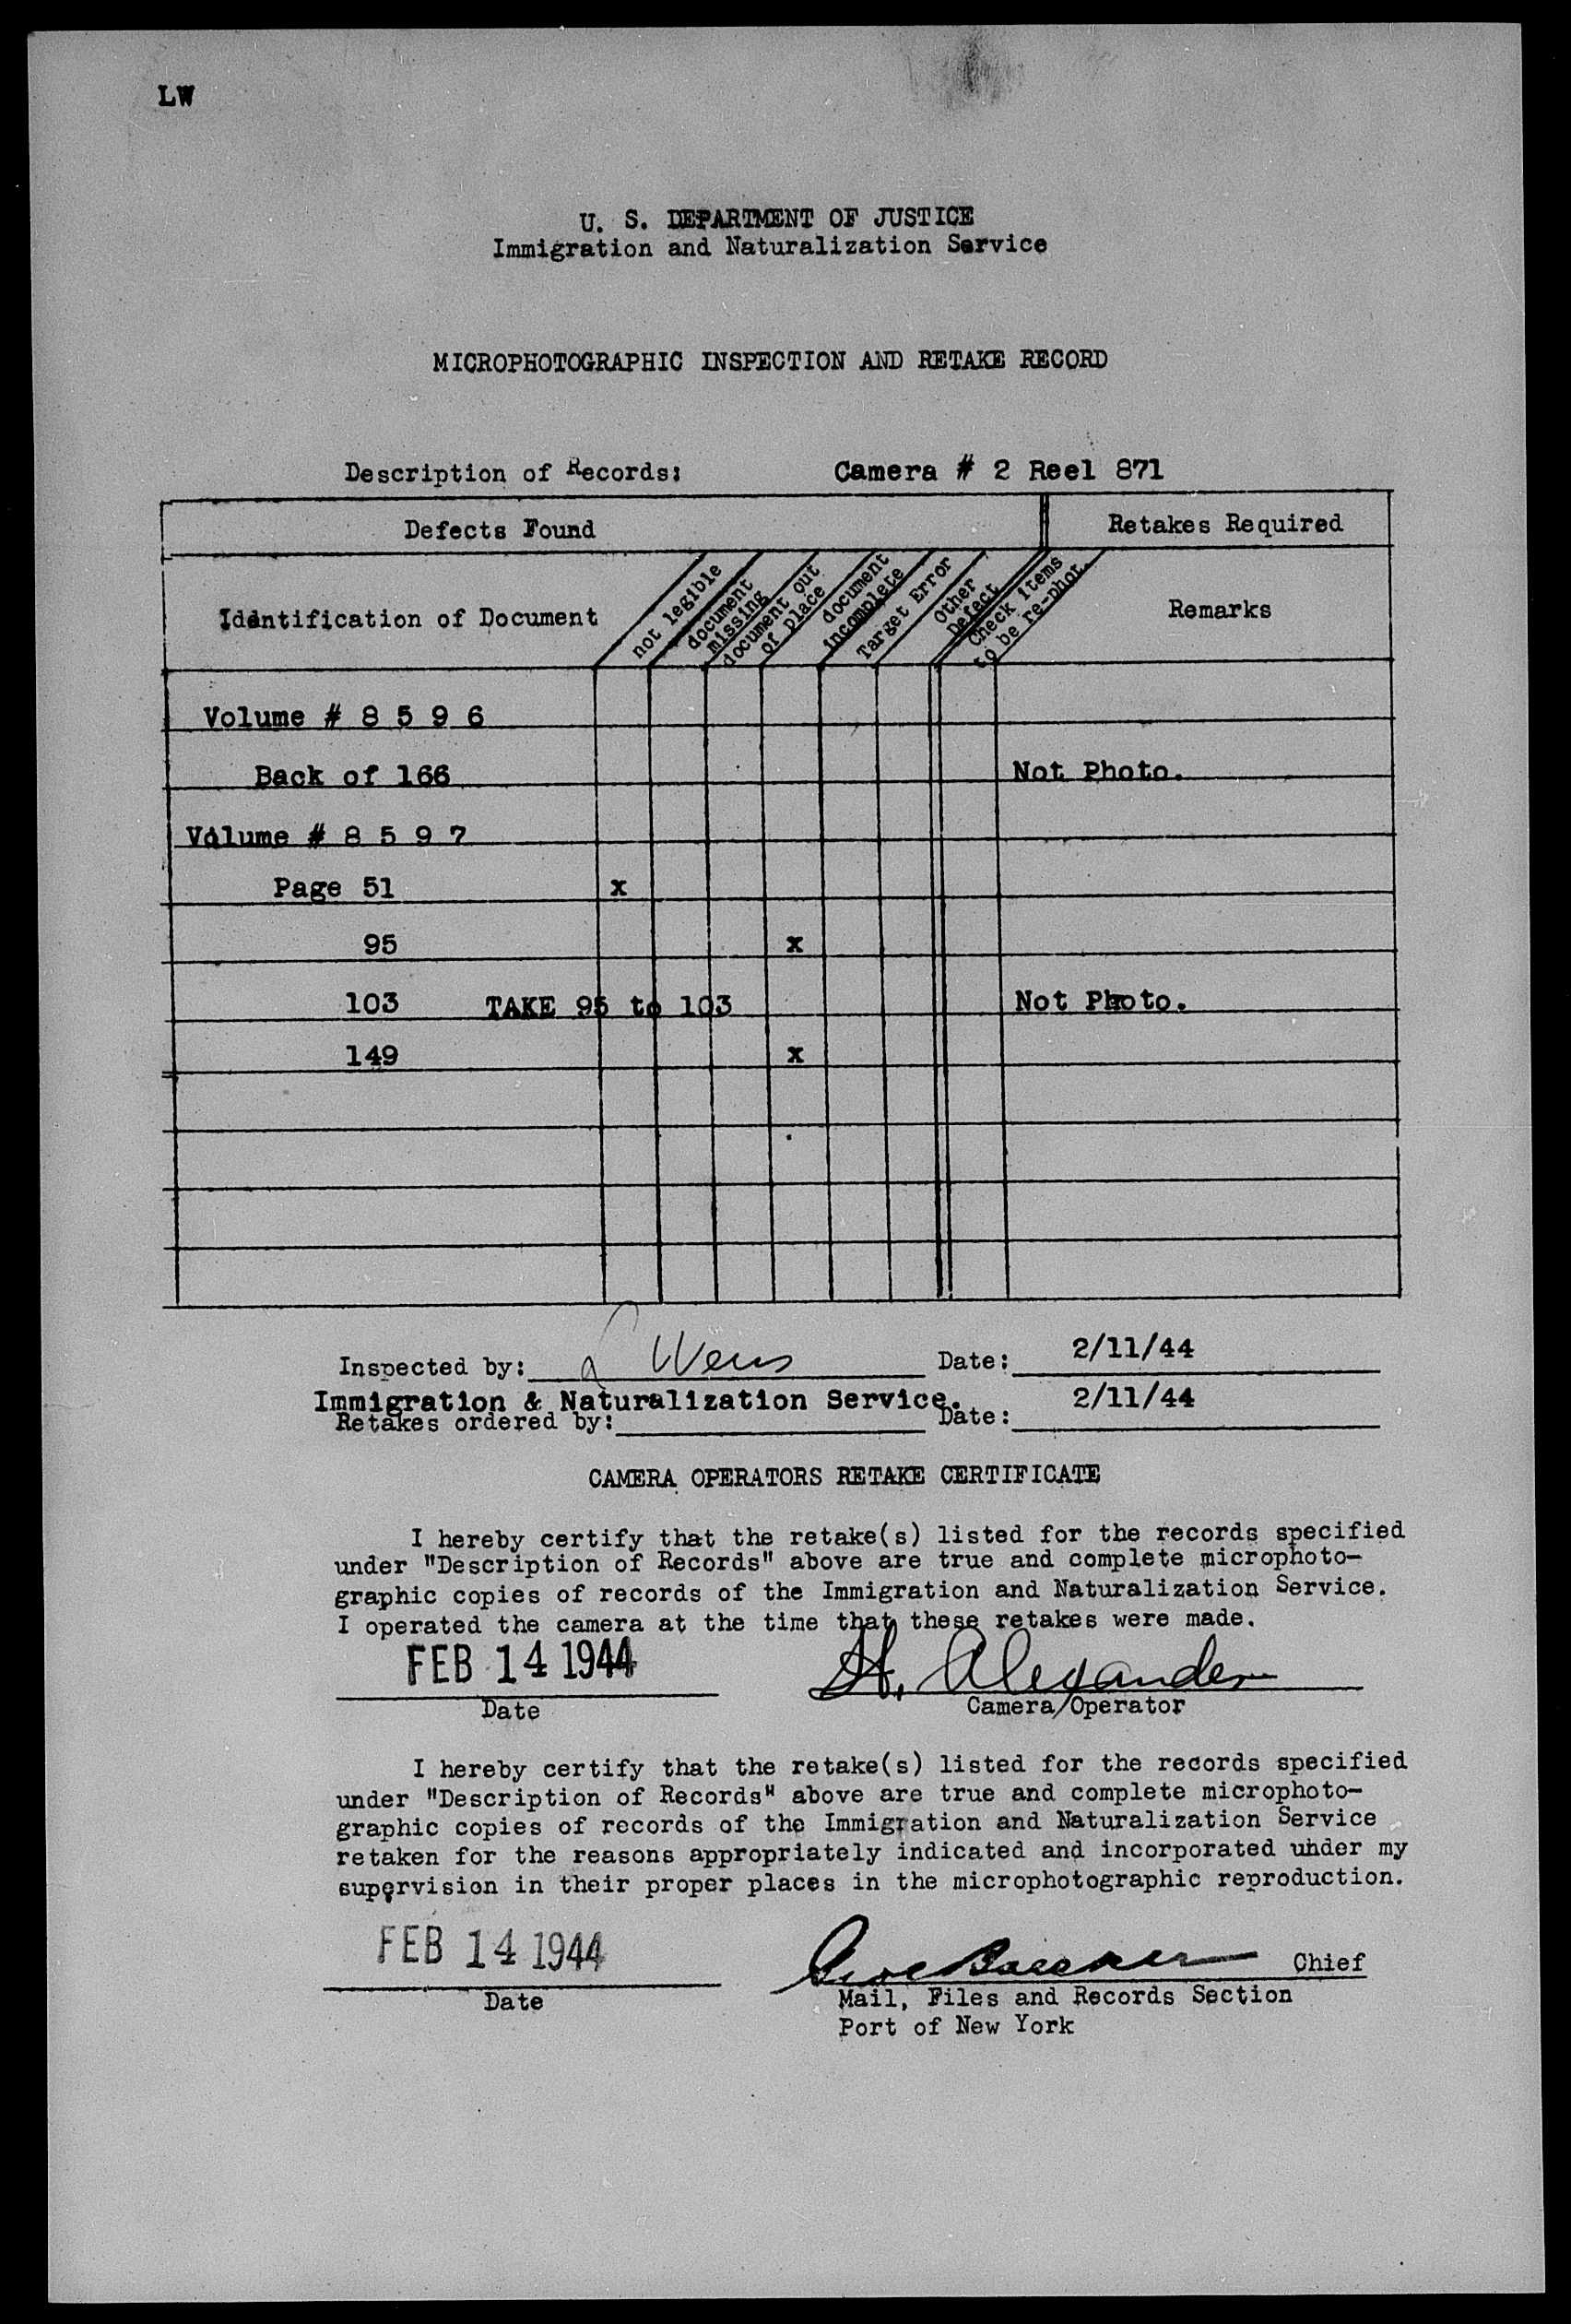 LW
U. S. DEPARTMENT OF JUSTICE
Immigration and Naturalization Service
MICROPHOTOGRAPHIC INSPECTION AND RETAKE RECORD
Description of Records: Camera # 2 Reel 871
Defects Found Retakes Required
Identification of Document
not legible
document missing
document out of place
document incomplete
Target Error
Other Defect
Check items to be re-phot.
Remarks
Volume # 8 5 9 6
Back of 166 Not Photo.
Volume # 8 5 9 7
Page 51 x
95 x
103 TAKE 95 to 103 Not Photo.
149 x
Inspected by: Date: 2/11/44
Immigration & Naturalization Service. 2/11/44
Retakes ordered by: Date:
CAMERA OPERATORS RETAKE CERTIFICATE
I hereby certify that the retake(s) listed for the records specified
under "Description of Records" above are true and complete microphoto-
graphic copies of records of the Immigration and Naturalization Service.
I operated the camera at the time that these retakes were made.
FEB 14 1944 H. Alexander
Date Camera Operator
I hereby certify that the retake(s) listed for the records specified
under "Description of Records" above are true and complete microphoto-
graphic copies of records of the Immigration and Naturalization Service
retaken for the reasons appropriately indicated and incorporated under my
supervision in their proper places in the microphotographic reproduction.
FEB 14 1944 Chief
Date Mail, Files and Records Section
Port of New York